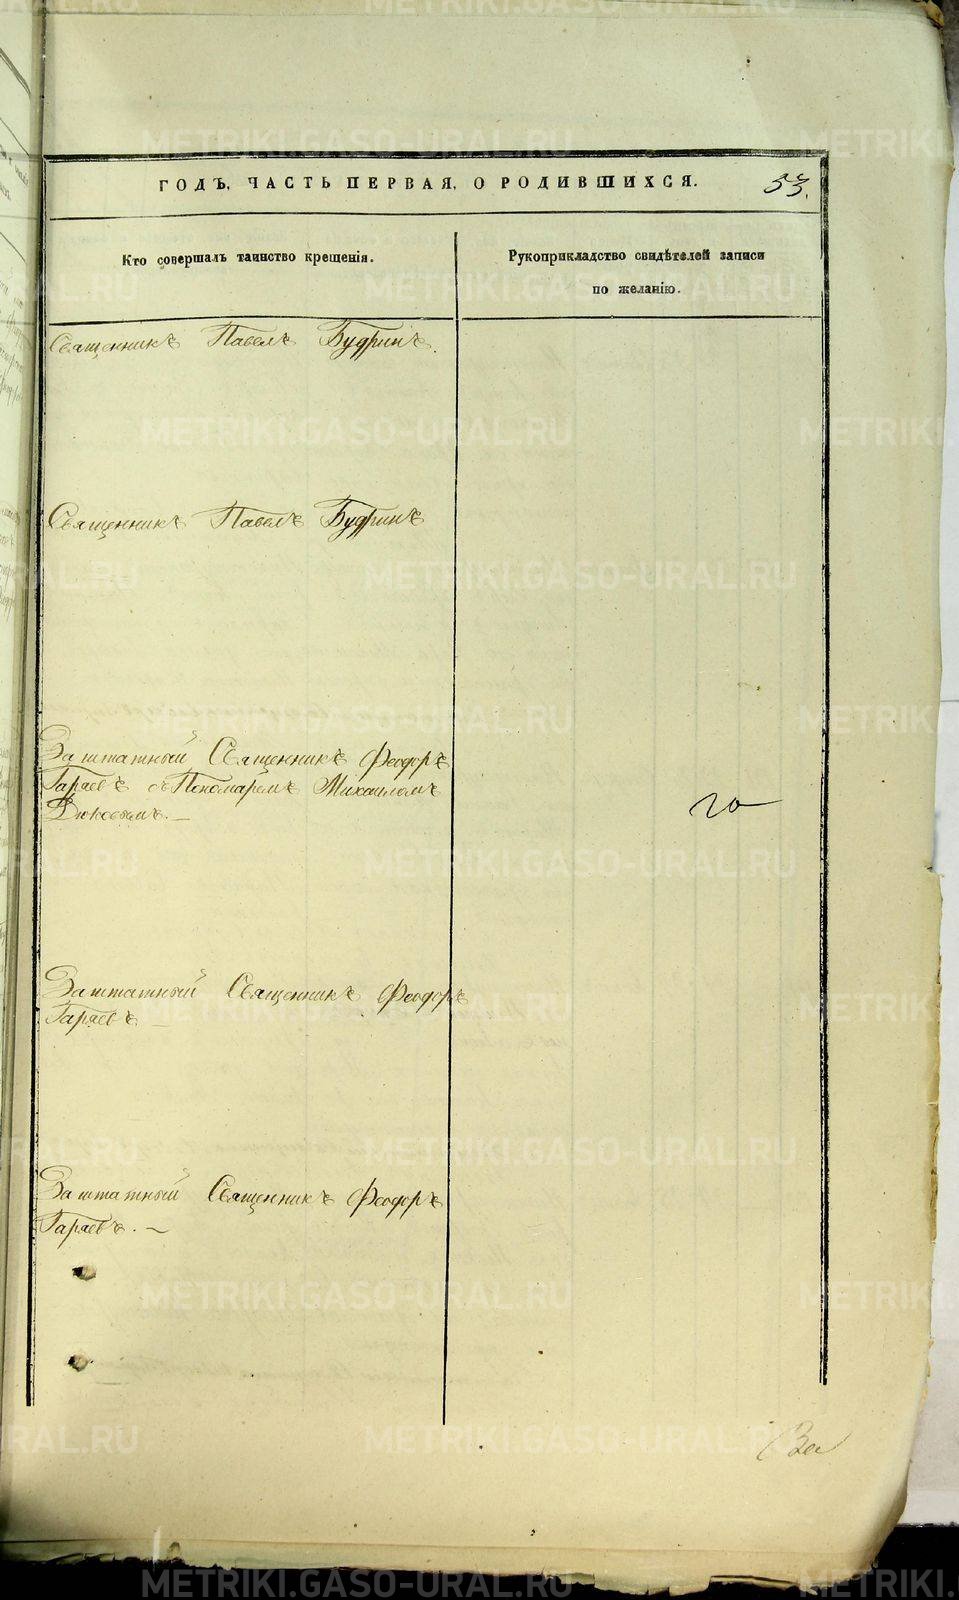 ГОДЪ, ЧАСТЬ ПЕРВАЯ, О РОДИВШИХСЯ. 53.
Кто совершалъ таинство крещенія.
Рукоприкладство свидѣтелей записи
по желанію.
Священникъ Павелъ Будринъ.
Священникъ Павелъ Будринъ
Заштатный Священникъ Феодоръ
Гаряевъ съ Пономаремъ Михаиломъ
Дюковымъ. —
го
Заштатный Священникъ Феодоръ
Гаряевъ —
Заштатный Священникъ Феодоръ
Гаряевъ. —
За
METRIKI.GASO-URAL.RU